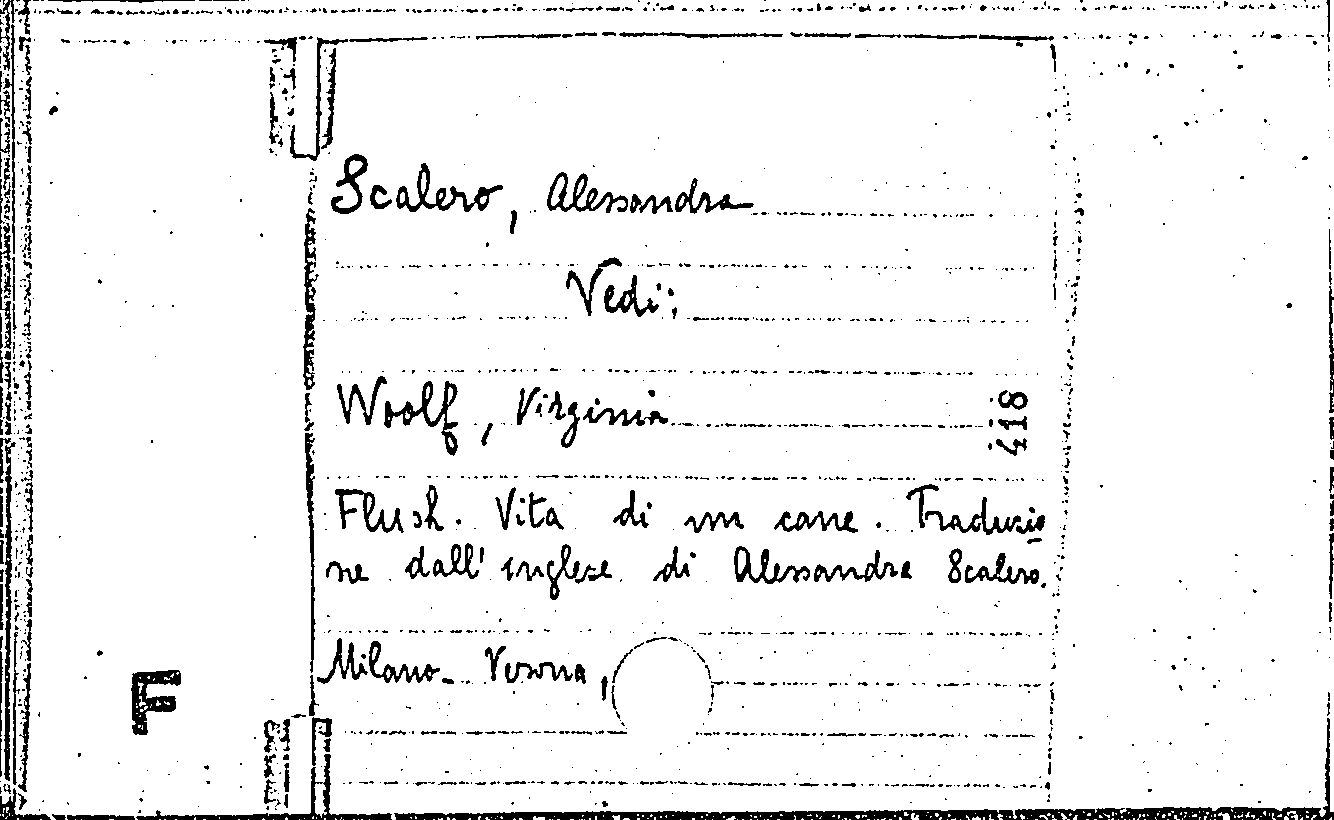 Scalero, Alessandra
Vedi:
Woolf, Virginia
418
Flush. Vita di un cane. Traduzio
ne dall'inglese di Alessandra Scalero.
Milano-Verona,
F